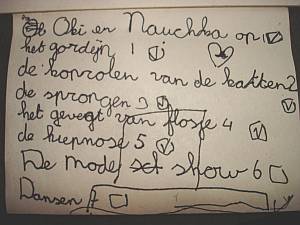 Obi en Nauchka op 1
het gordijn 1
de konrolen van de katten 2
de sprongen 3
het gevegt van flosje 4
de hiepnose 5
De mode show 6
Dansen 7